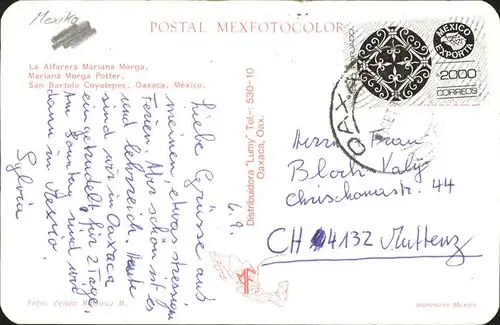 Mexiko
POSTAL MEXFOTOCOLOR
La Alfarera Mariana Morga.
Mariana Morga Potter.
San Bartolo Coyotepec, Oaxaca, México.
MEXICO
EXPORTA
2000
CORREOS
OAX.
6.9.
Liebe Grüsse aus
meinen, etwas stressigen
Ferien. Aber schön ist es
und lehrreich. Heute
sind wir in Oaxaca
eingetrudelt für 2 Tage.
Am Sonntag sind wir
dann in Mexico.
Sylvia
Distribuidora "Lumy" Tel.: 530-10
Oaxaca, Oax.
Herrn Frau
Bloch
Chrischonastr. 44
CH 4132 Muttenz
Foto: Zenón Ramírez M.
Impreso en México